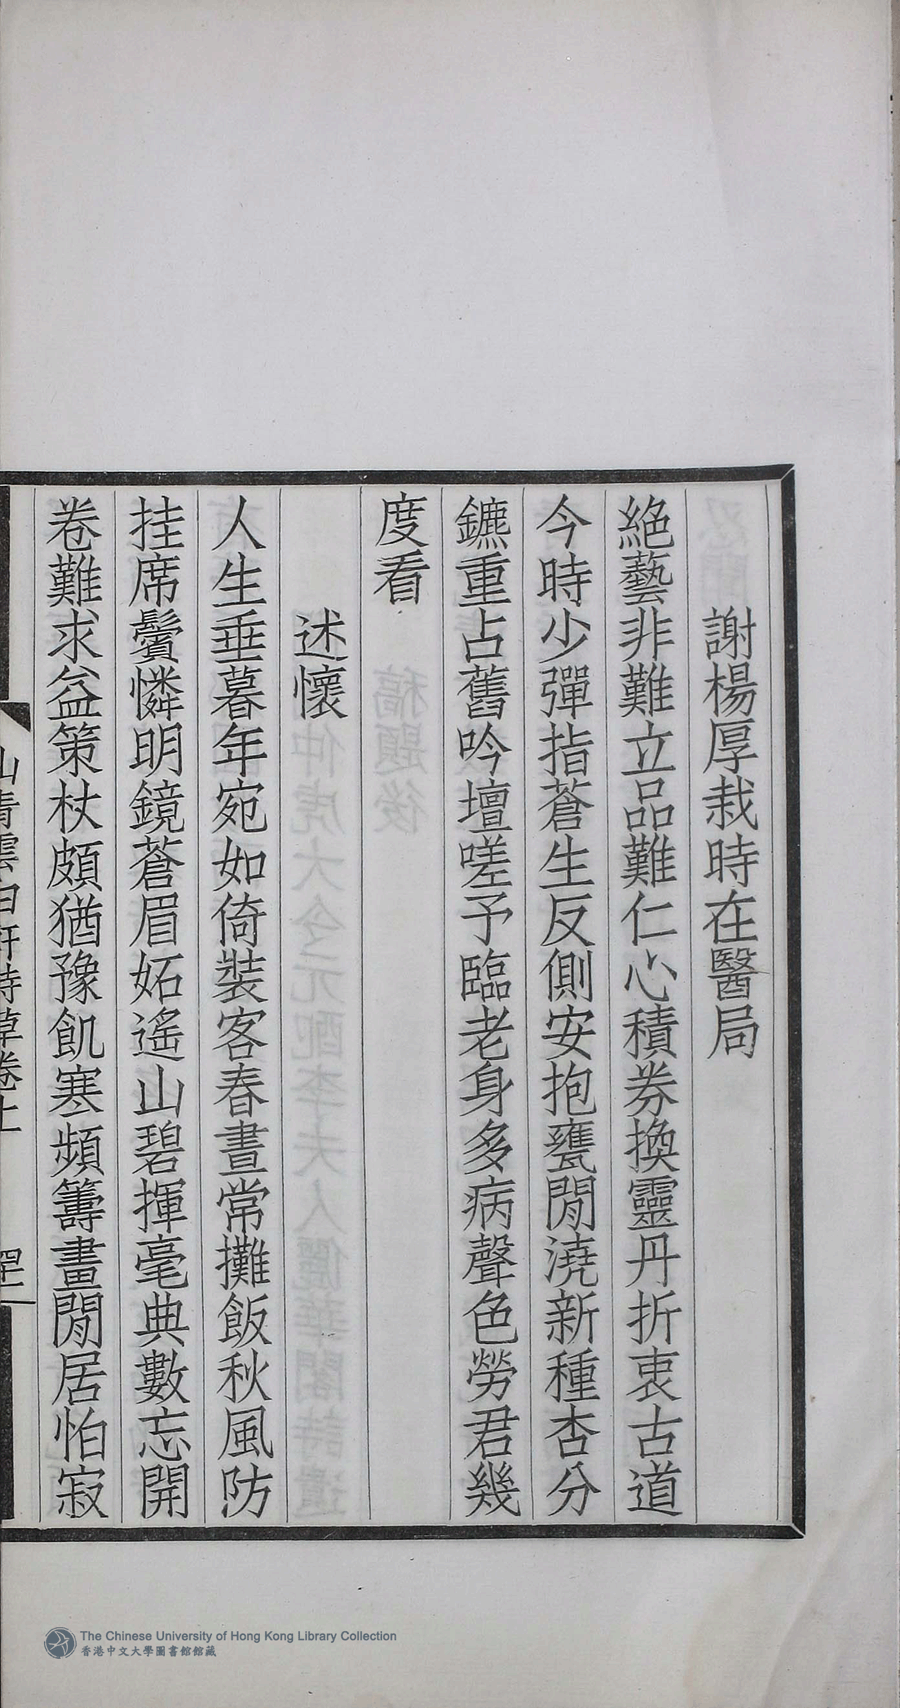 謝楊厚栽時在醫局
絕藝非難立品難仁心積券換靈丹折衷古道
今時少彈指蒼生反側安抱甕閒澆新種杏分
鑣重占舊吟壇嗟予臨老身多病聲色勞君幾
度看
述懷
人生垂暮年宛如倚裝客春晝常攤飯秋風防
挂席鬢憐明鏡蒼眉妬遙山碧揮毫典數忘開
卷難求益策杖頗猶豫飢寒頻籌畫閒居怕寂
山青雲白軒詩草卷上
The Chinese University of Hong Kong Library Collection
香港中文大學圖書館館藏